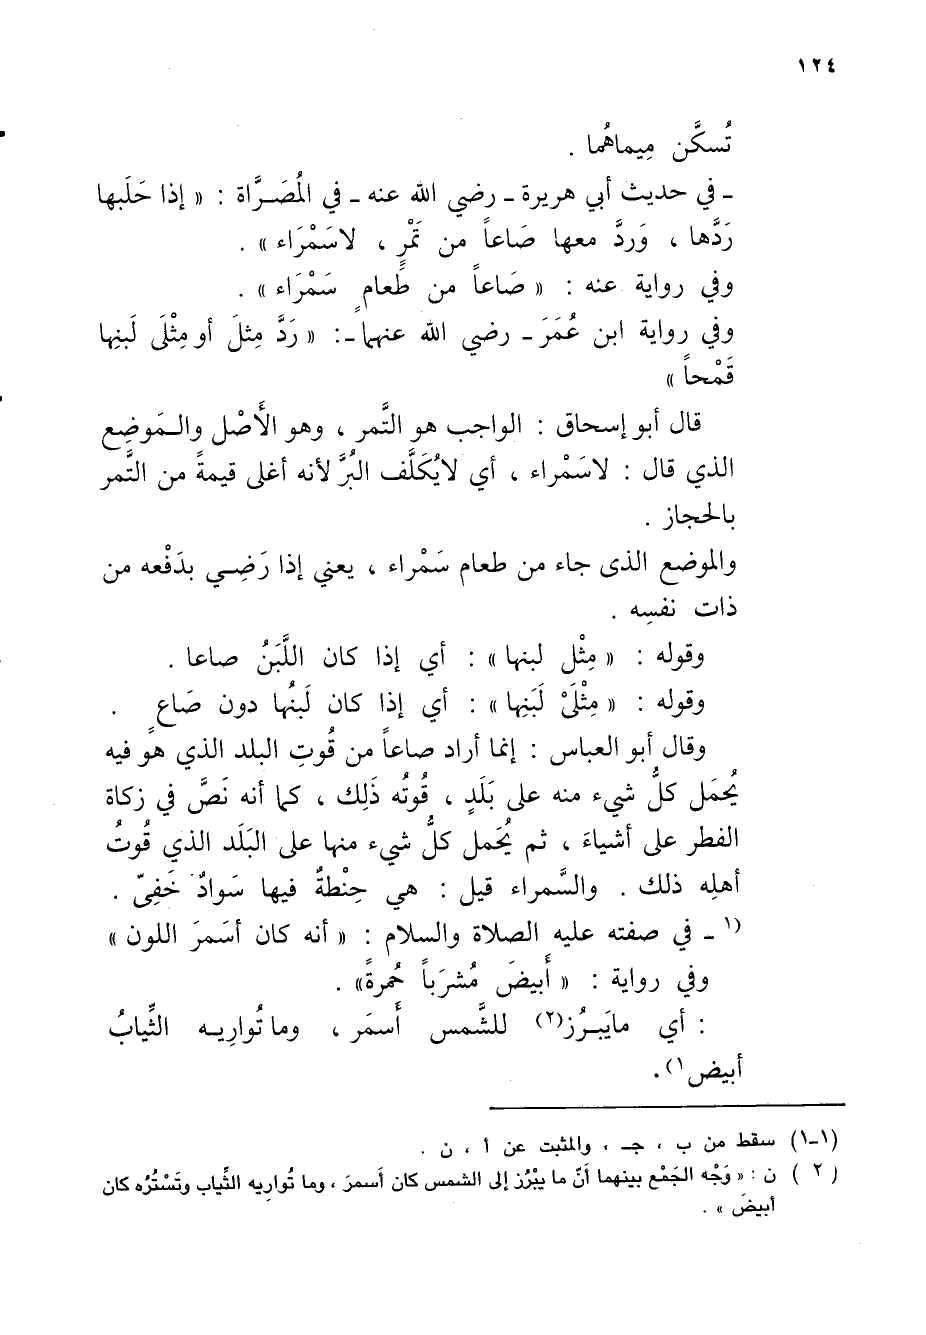 ١٢٤
تُسكَّن مِيماهُما .
ـ في حديث أبي هريرة ـ رضي الله عنه ـ في المُصَرَّاة : « إذا حَلَبها
رَدَّها ، وَردَّ معها صَاعاً من تَمْرٍ ، لاسَمْرَاء » .
وفي رواية عنه : « صَاعاً من طَعامٍ سَمْرَاء » .
وفي رواية ابن عُمَرَ ـ رضي الله عنهما ـ: « رَدَّ مِثلَ أو مِثْلَى لَبنِها
قَمْحاً »
قال أبو إسحاق : الواجب هو التَّمر ، وهو الأَصْل والـمَوضِع
الذي قال : لاسَمْراء ، أي لايُكَلَّف البُرَّ لأنه أغلى قيمةً من التَّمر
بالحجاز .
والموضع الذى جاء من طعام سَمْراء ، يعني إذا رَضِي بدَفْعه من
ذات نفسِه .
وقوله : « مِثْل لبنها » : أي إذا كان اللَّبَنُ صاعا .
وقوله : « مِثْلَىْ لَبَنِها » : أي إذا كان لَبنُها دون صَاعٍ .
وقال أبو العباس : إنما أراد صاعاً من قُوتِ البلد الذي هو فيه
يُحمَل كلُّ شيء منه على بَلَدٍ ، قُوتُه ذَلِك ، كما أنه نَصَّ في زكاة
الفطر على أشياءَ ، ثم يُحَمل كلُّ شيء منها على البَلَد الذي قُوتُ
أهلِه ذلك . والسَّمراء قيل : هي حِنْطةٌ فيها سَوادٌ خَفِىّ .
(١ ـ في صفته عليه الصلاة والسلام : « أنه كان أسَمرَ اللون »
وفي رواية : « أَبيضَ مُشرَباً حُمرةً» .
: أي مايَبـرُز(٢) للشَّمس أَسمَر ، وما تُوارِيـه الثِّيابُ
أبيض ١).
(١-١) سقط من ب ، جـ ، والمثبت عن أ ، ن .
( ٢ ) ن : « وَجْه الجَمْع بينهما أنّ ما يبْرُز إلى الشمس كان أسمرَ ، وما تُوارِيه الثِّياب وتَسْتُرُه كان
أبيضَ » .